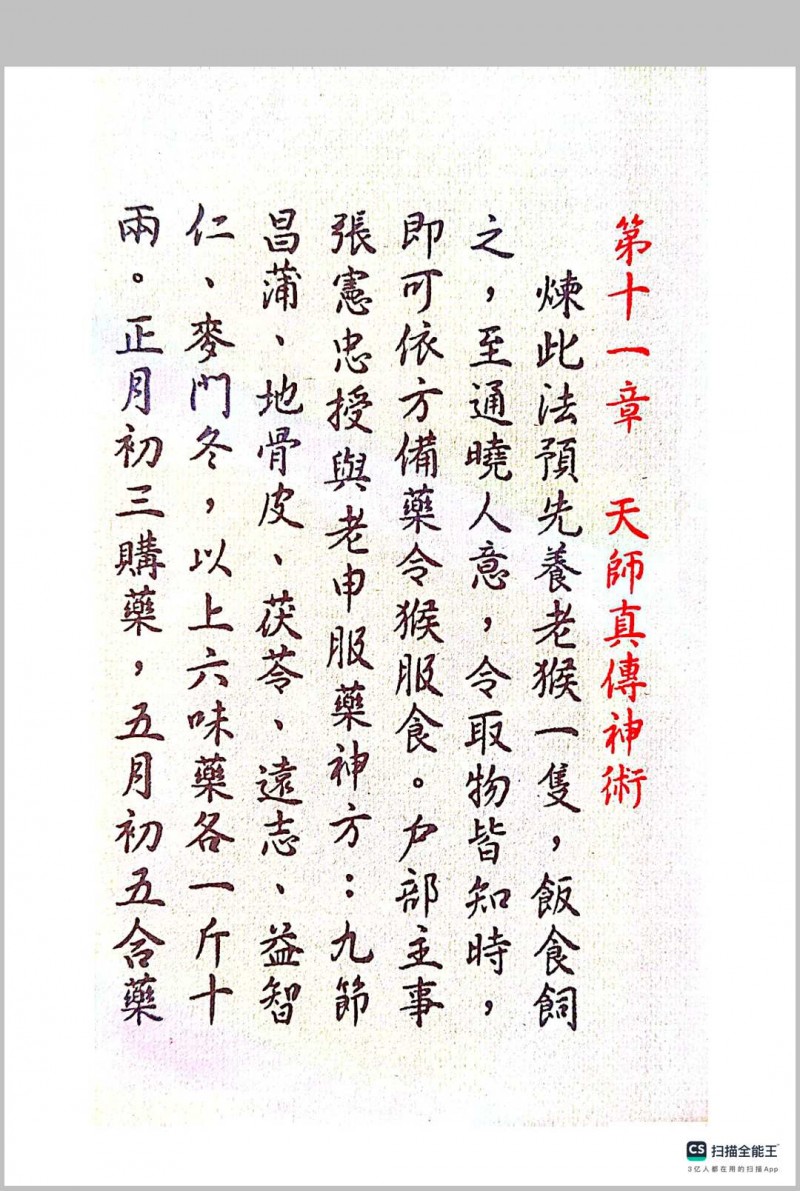 第十一章　天師真傳神術
煉此法預先養老猴一隻，飯食飼
之，至通曉人意，令取物皆知時，
即可依方備藥令猴服食。户部主事
張憲忠授與老申服藥神方：九節
昌蒲、地骨皮、茯苓、遠志、益智
仁、麥門冬，以上六味藥各一斤十
兩。正月初三購藥，五月初五合藥
CS 扫描全能王
3亿人都在用的扫描App